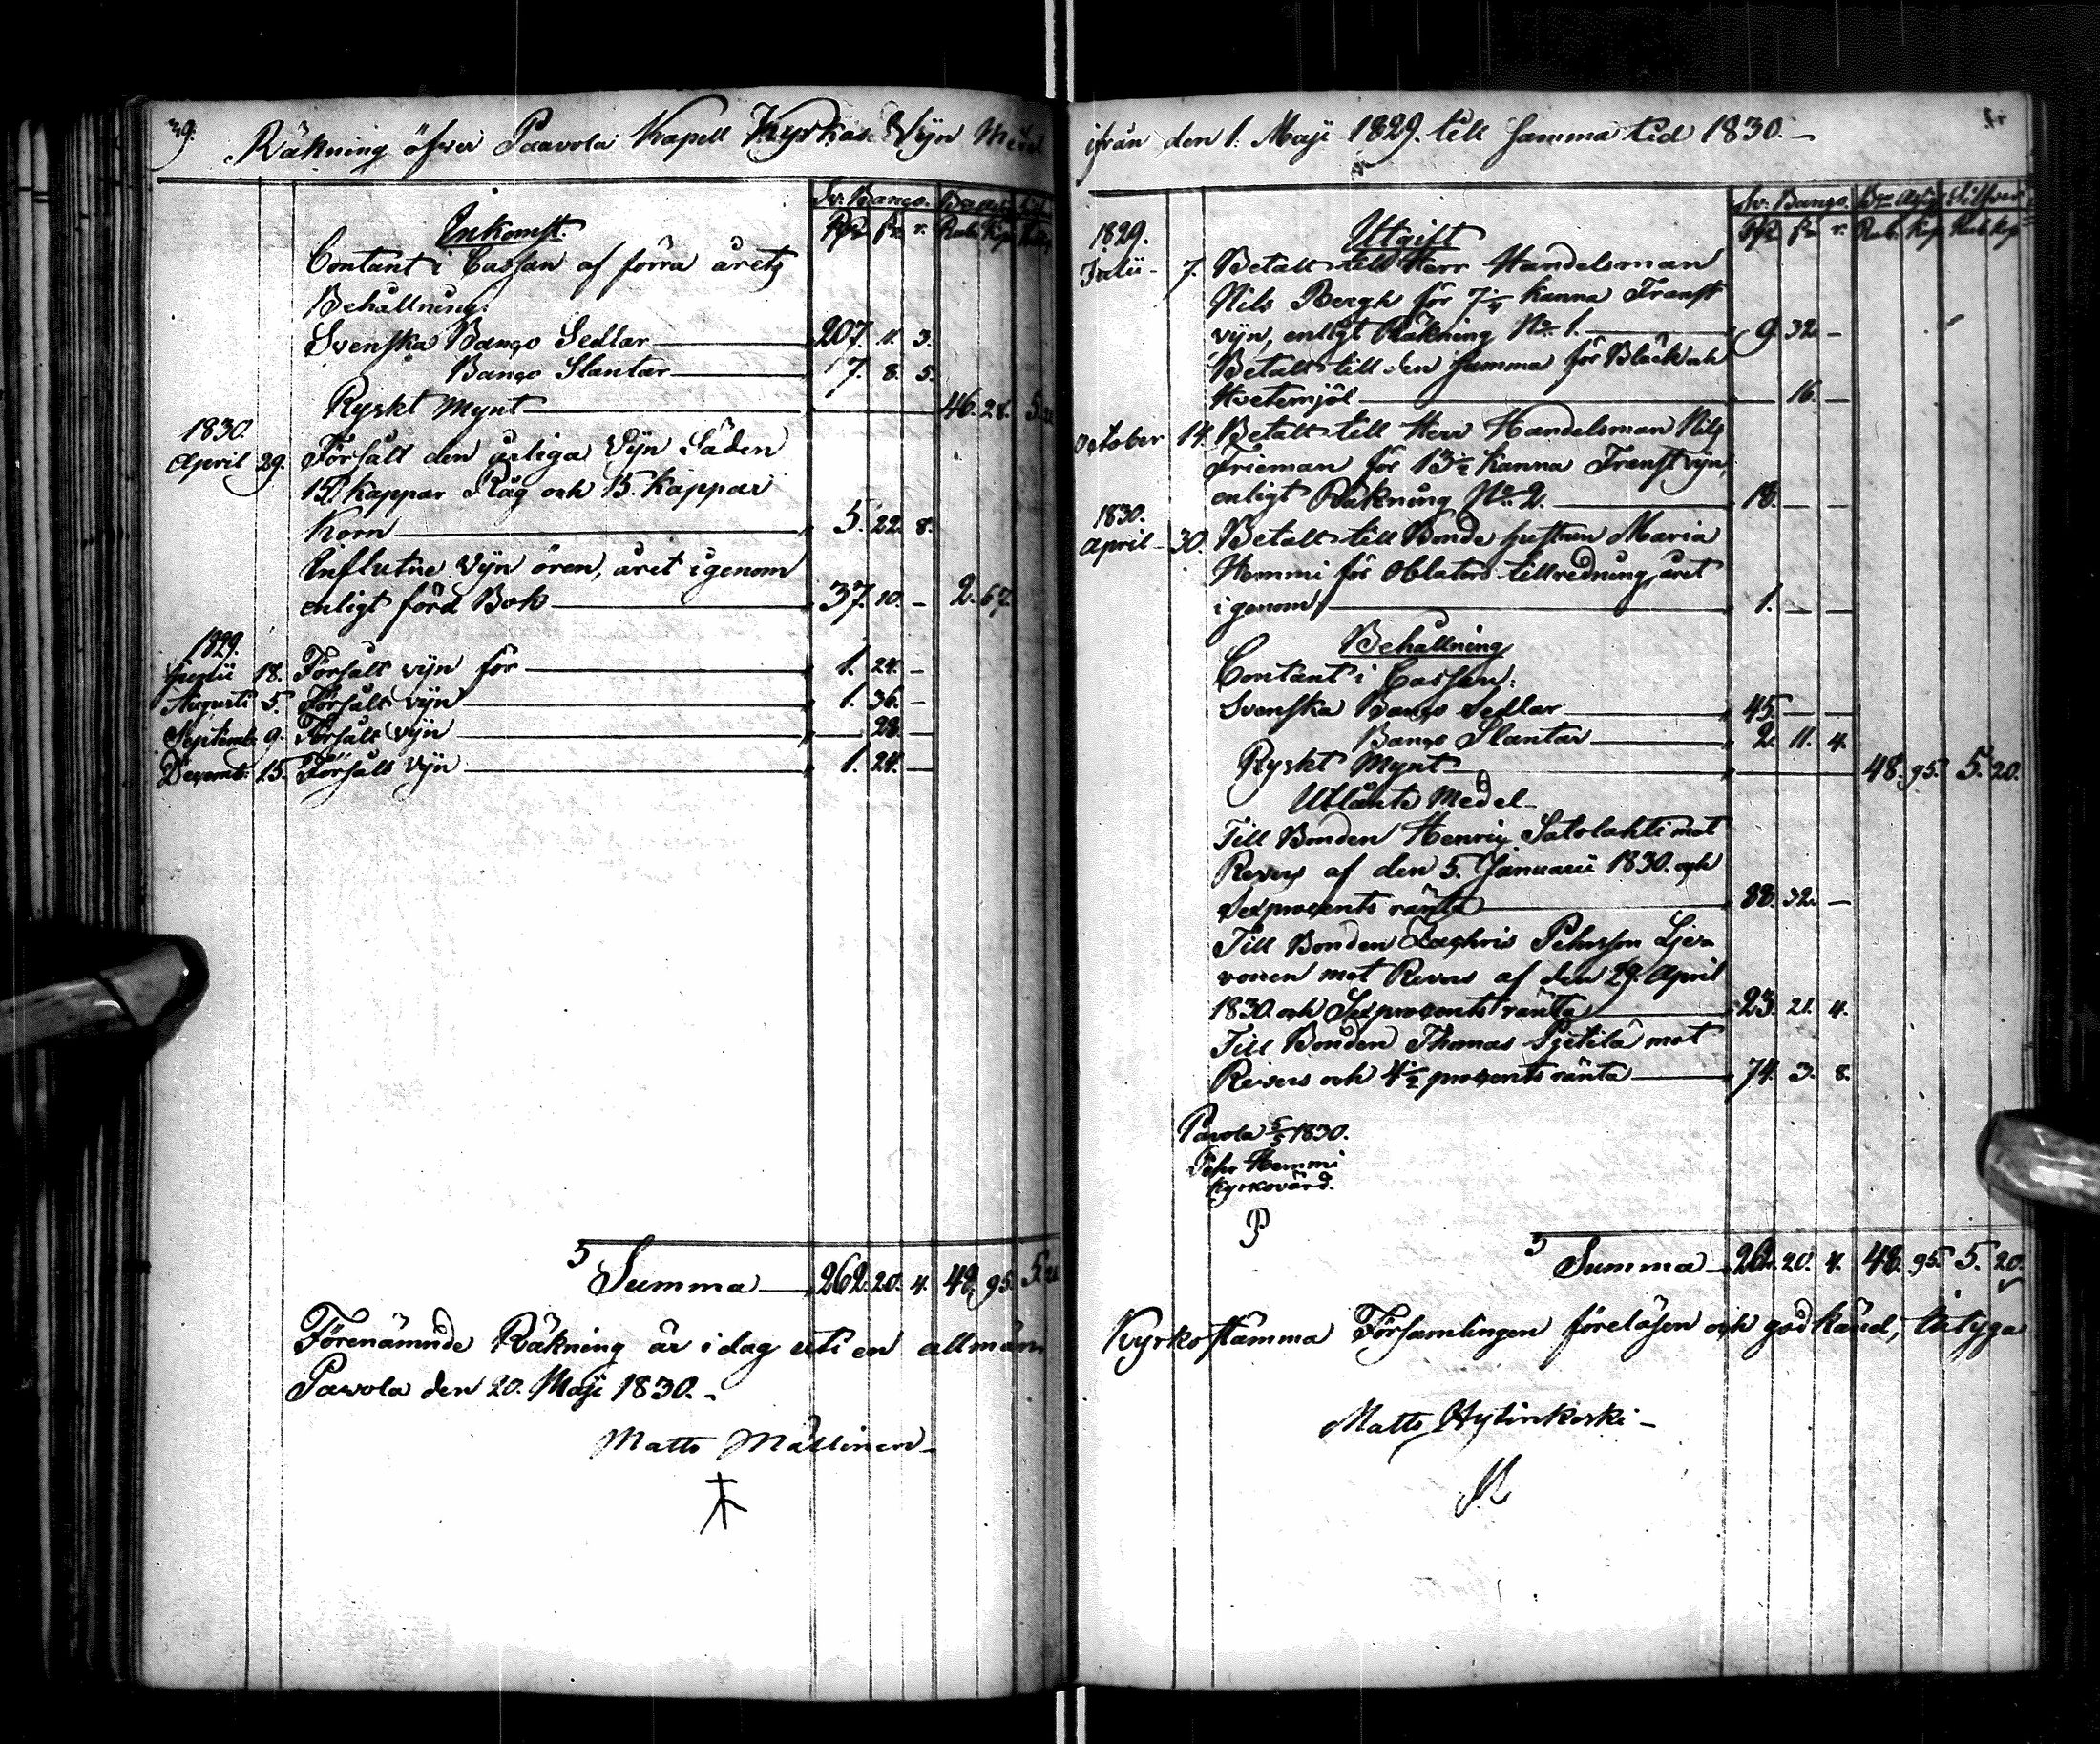 39.
Räkning öfver Paavola Kapell Kyrkas Vijn Medel
Sv. Banco. Bco Assig.
Inkomst. Rdr s. r. Rub. Kop.
Contant i Cassan af förra årets
Behållning:
Svenska Banco Sedlar 207. 11. 3.
Banco Slantar 7. 8. 5.
Ryskt Mynt 46. 28. 5. 20
1830.
April 29. Försålt den årliga Vijn Säden
kappar Råg och 15. kappar
Korn 5. 22. 8.
Influtne Vijn ören, året igenom
enligt förd Bok 37. 10. – 2. 67.
1829.
18. Försålt vijn för 1. 24. –
Augusti 5. Försålt vijn 1. 36. –
Septemb. 9. Försålt vijn 28. –
Decemb. 15. Försålt vijn 1. 24. –
Summa 262. 20. 4. 48. 95. 5. 20
Förenämnde Räkning är i dag uti en allmän
Pavola den 20. Maji 1830. –
Matts Mällinen –
ifrån den 1. Maji 1829. till samma tid 1830. –
Sv. Banco. Bco Assig. Silfver
1829. Utgift Rdr s. r. Rub. Kop. Rub. Kop.
Julii – 7. Betalt till Herr Handelsman
Nils Bergh för 7 1/4 kanna Franst
vijn, enligt Räkning No 1. 9. 32. –
Betalt till den samma för Bläck och
Hvetemjöl 16. –
October 14. Betalt till Herr Handelsman Nils
Frieman för 13 1/2 kanna Franst vijn,
enligt Räkning No 2. 18. – –
1830.
April – 30. Betalt till Bonde hustrun Maria
Hemmi för Oblaters tillredning, året
igenom 1. – –
Behållning
Contant i Cassan:
Svenska Banco Sedlar 45 – –
Banco Slantar 2. 11. 4.
Ryskt Mynt 48. 95. 5. 20.
Utlånte Medel –
Till Bonden Henric Satolahti mot
Revers af den 5. Januarii 1830. och
Sexprocents ränta 88. 32. –
Till Bonden Zachris Pehrsson Lje-
vonen mot Revers af den 29. April
1830. och Sexprocents ränta 23. 21. 4.
Till Bonden Thomas Pietilä mot
Revers och 4 1/2 procents ränta 74. 3. 8.
Pavola 5/5 1830.
Pehr Hemmi
Kyrkovärd.
P
Summa 262. 20. 4. 48. 95. 5. 20.
Kyrkostämma Församlingen föreläsen och godkänd, intyga
Matts Hytinkoski –